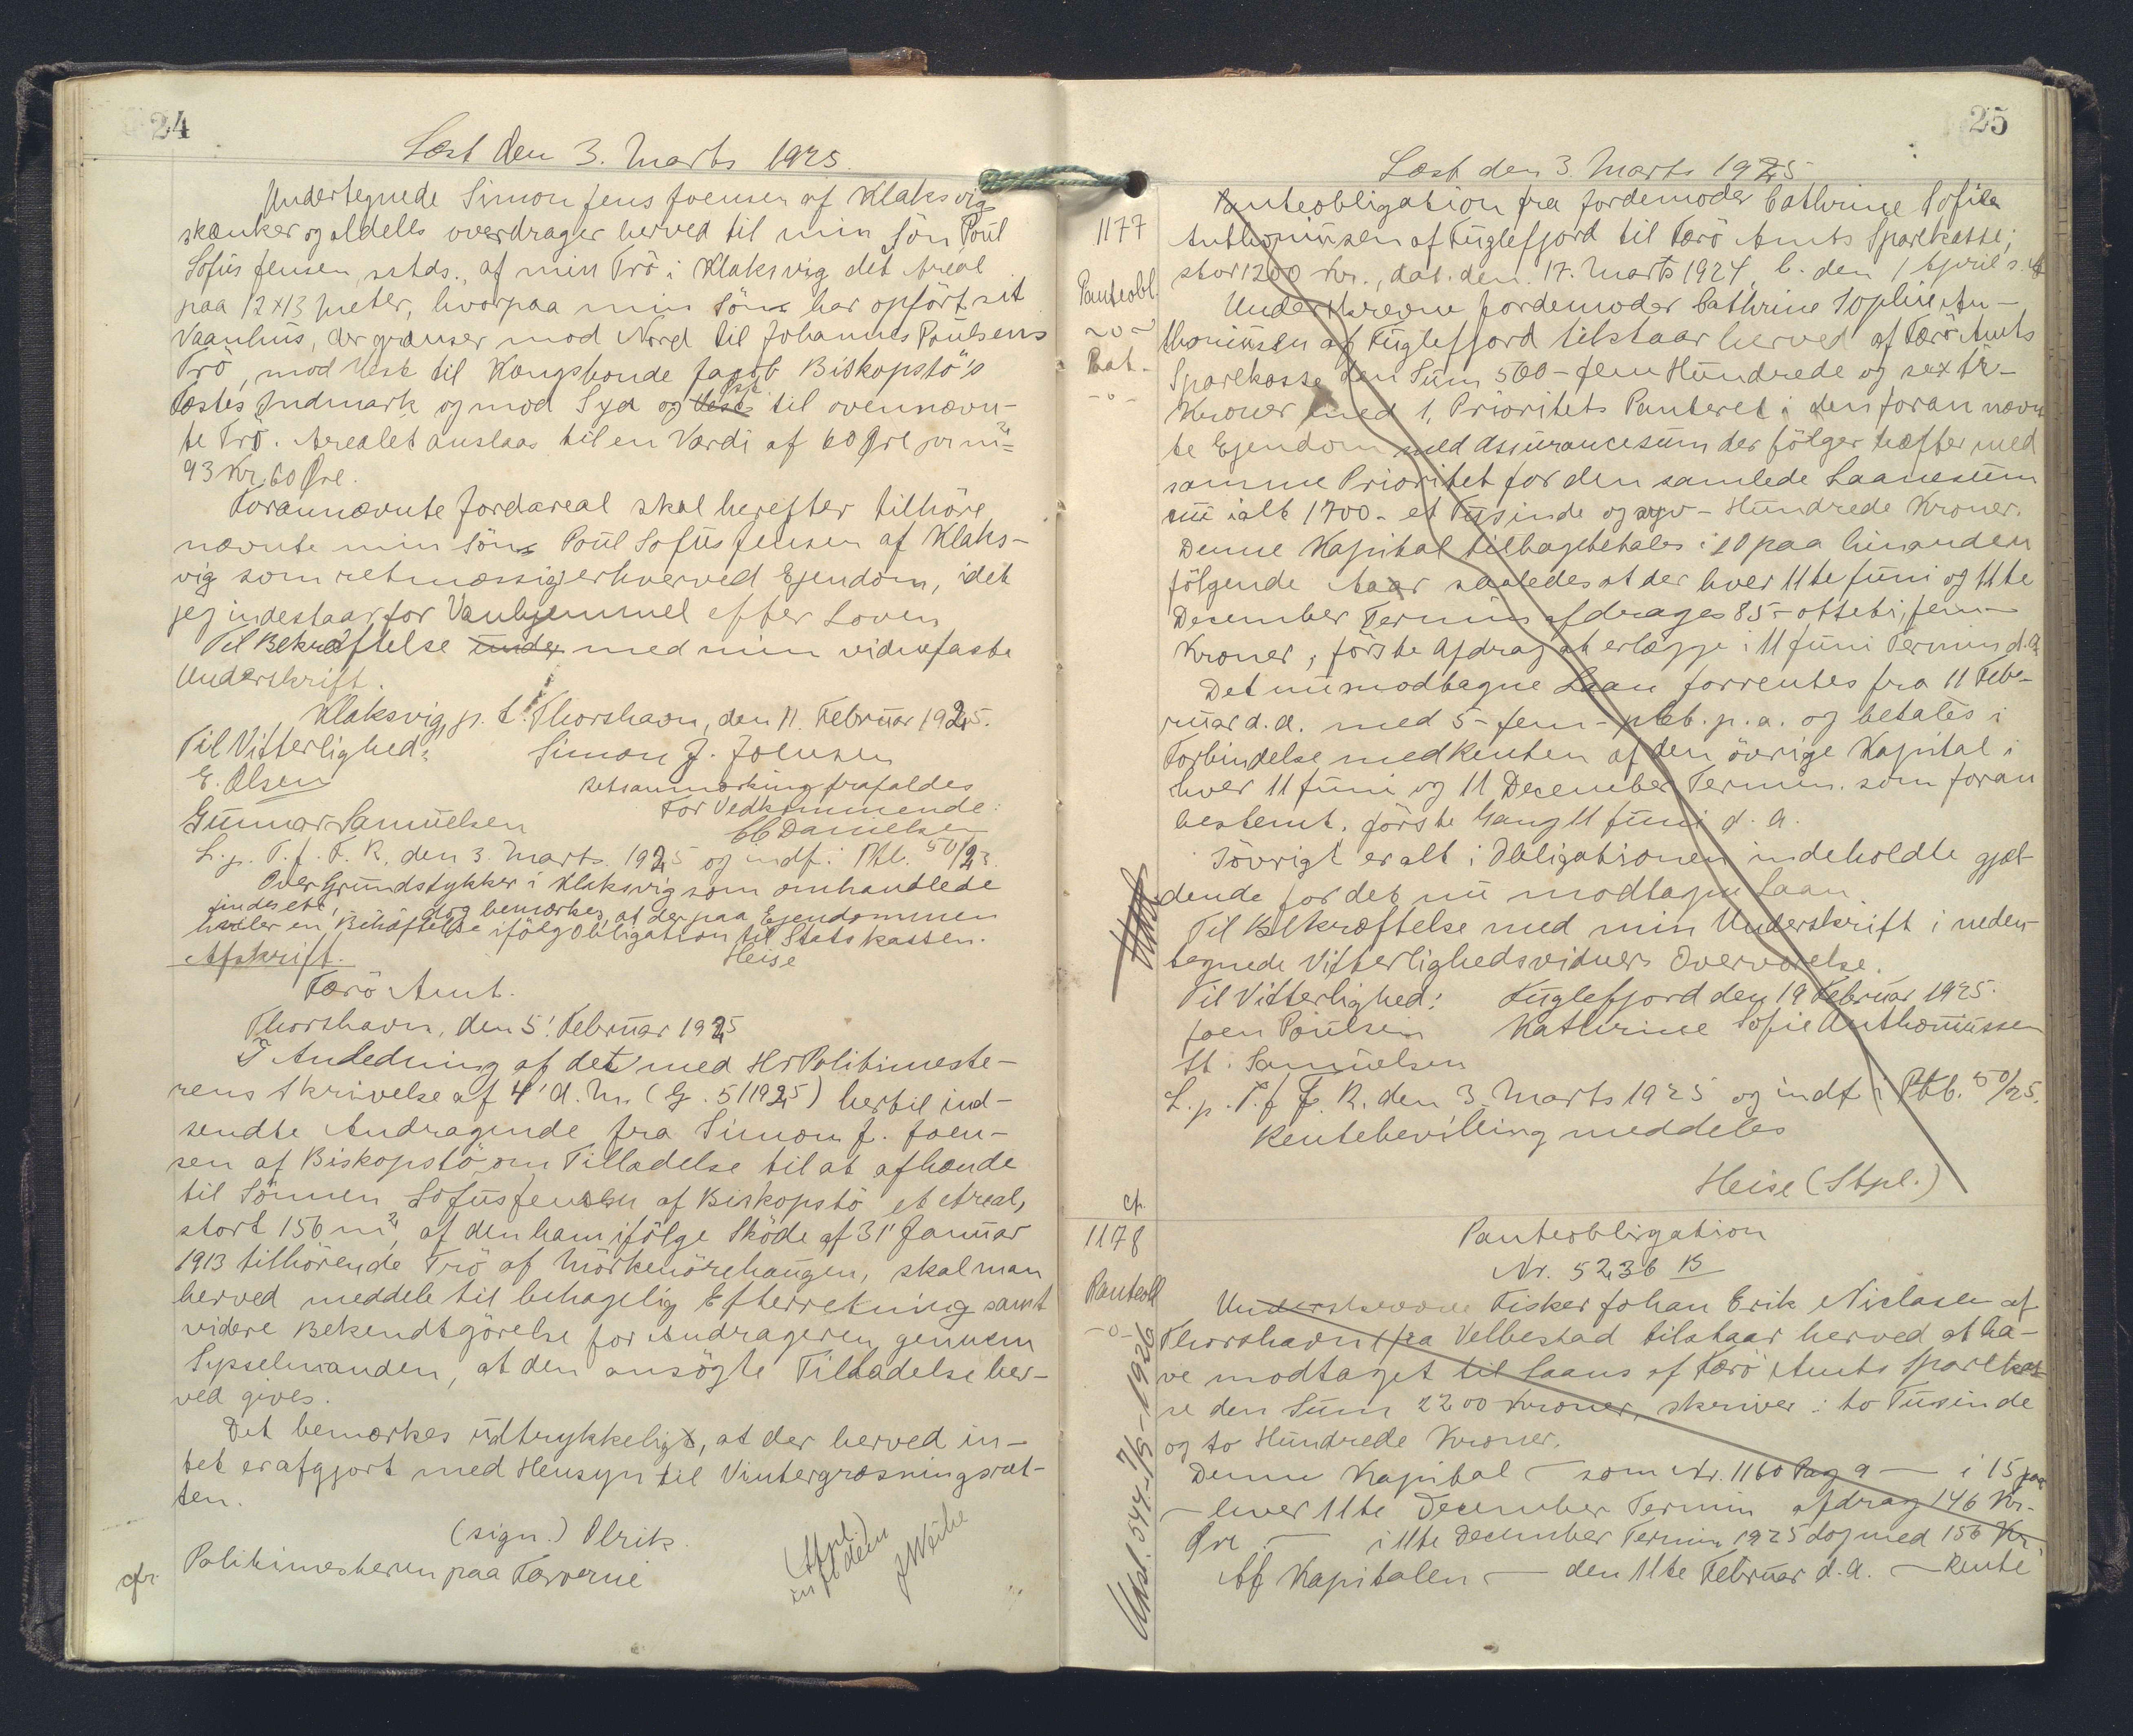 24
Læst den 3. Marts 1925.
Undertegnede Simon Jens Joensen af Klaksvig
skænker og aldells overdrager herved til min Sön Poul
Sofus Jensen, sstds., af min Trö i Klaksvig det Areal
paa 12x13 Meter, hvorpaa min Sön har opfört sit
Vaanhus, der grænser mod Nord til Johannes Poulsens
Trö, mod Vest til Kongsbonde Jacob Biskopstö's
Fæstes Indmark og mod Syd og Vest Øst til ovennævn-
te Trö. Arealet anslaas til en Værdi af 60 Øre pr m2 =
93 Kr. 60 Øre.
Forannævnte Jordareal skal herefter tilhöre
nævnte min Sön Poul Sofus Jensen af Klaks-
vig som retmæssig erhverved Ejendom, idet
jeg indestaar for Vanhjemmel efter Loven
Til Bekræftelse under med min vidnefaste
Underskrift.
Klaksvig, p. t. Thorshavn, den 11. Februar 1925.
Til Vitterlighed: Simon J. Joensen
E. Olsen Retsanmærkning frafaldes
For Vedkommende:
Gunnar Samuelsen Danielsen
L. p. T. f. F. R. den 3. Marts 1925 og indf. i Ptb. 50/23.
Over Grundstykker i Klaksvig som omhandlede
findes ete, dog bemærkes, at der paa Ejendommen
hviler en Behæftelse ifölg Obligation til Statskassen.
Afskrift. Heise
Færö Amt.
Thorshavn, den 5' Februar 1925
I Anledning af det med Hr Politimeste-
rens Skrivelse af 4' d. M. (G. 5/1925) hertil ind-
sendte Andragende fra Simon J. Joen-
sen af Biskopstö om Tilladelse til at afhænde
til Sönnen Sofus Jensen af Biskopstö et Areal,
stort 156 m2, af den ham ifölge Sköde af 31' Januar
1913 tilhörende Trö af Mörkenörehaugen, skal man
herved meddele til behagelig Efterretning samt
videre Bekendtgörelse for Andrageren gennem
Sysselmanden, at den ansögte Tilladelse her-
ved gives.
Det bemærkes udtrykkeligt, at der herved in-
tet er afgjort med Hensyn til Vintergræsningsret-
ten.
(sign.) Olrik.
cfr. Politimesteren paa Færoerne
25
Læst den 3. Marts 1925
1177
Panteobl.
Panteobligation fra Jordemoder Cathrine Sofie
Anthoniusen af Fuglefjord til Færö Amts Sparekasse,
stor 1200 Kr., dat. den 17. Marts 1924, l. den 1 April s. A
Underskrevne Jordemoder Cathrine Sophie An-
thoniusen af Fuglefjord tilstaar herved af Færö Amts
Sparekasse den Sum 500 - fem Hundrede og sextr -
Kroner med 1. Prioritets Panteret i den foran nævn
te Ejendom med Assurancesum der fölger hæfter med
samme Prioritet for den samlede Laanesum
nu ialt 1700 - et Tusinde og syv - Hundrede Kroner.
Denne Kapital tilbagebetales i 10 paa hinanden
fölgende Aaar saaledes at der hver 11te Juni og 11te
December Termin afdrages 85 - otteti, fem -
Kroner, förste Afdrag at erlægge i 11 Juni Termin d. A
Det nu modtagne Laan forrentes fra 11 Feb-
ruar d. A. med 5 - fem - pCt. p. a. og betales i
Forbindelse med Renten af den övrige Kapital i
hver 11 Juni og 11 December Termin. som foran
bestemt. förste Gang 11 Juni d. A.
Iövrigt er alt i Obligationen indeholdte gjæl-
dende for det nu modtagne Laan
Til Bekræftelse med min Underskrift i neden-
tegnede Vitterlighedsvidners Overværelse.
Til Vitterlighed: Fuglefjord den 19 Februar 1925.
Joen Poulsen Kathrine Sofie Anthoniussen
H. Samuelsen
L. p. T. f F. R. den 3. Marts 1925 og indf i Ptb. 50/25.
Rentebevilling meddeles
Heise (Stpl.)
cf.
1178
Panteobl
Udsl. 544 - 7/5 - 1926
Panteobligation
Nr. 5236 B
Underskrevne Fisker Johan Erik Niclasen af
Thorshavn fra Velbestad tilstaar herved at ha-
ve modtaget til Laans af Færö Amts Sparekas
se den Sum 2200 Kroner, skriver: to Tusinde
og to Hundrede Kroner.
Denne Kapital - som Nr. 1160 Pag 9 - i 15 paa
- hver 11te December Termin afdrag 146 Kr.
Øre - i 11te December Termin 1925 dog med 156 Kr.
Af Kapitalen - den 11te Februar d. A. - Rente